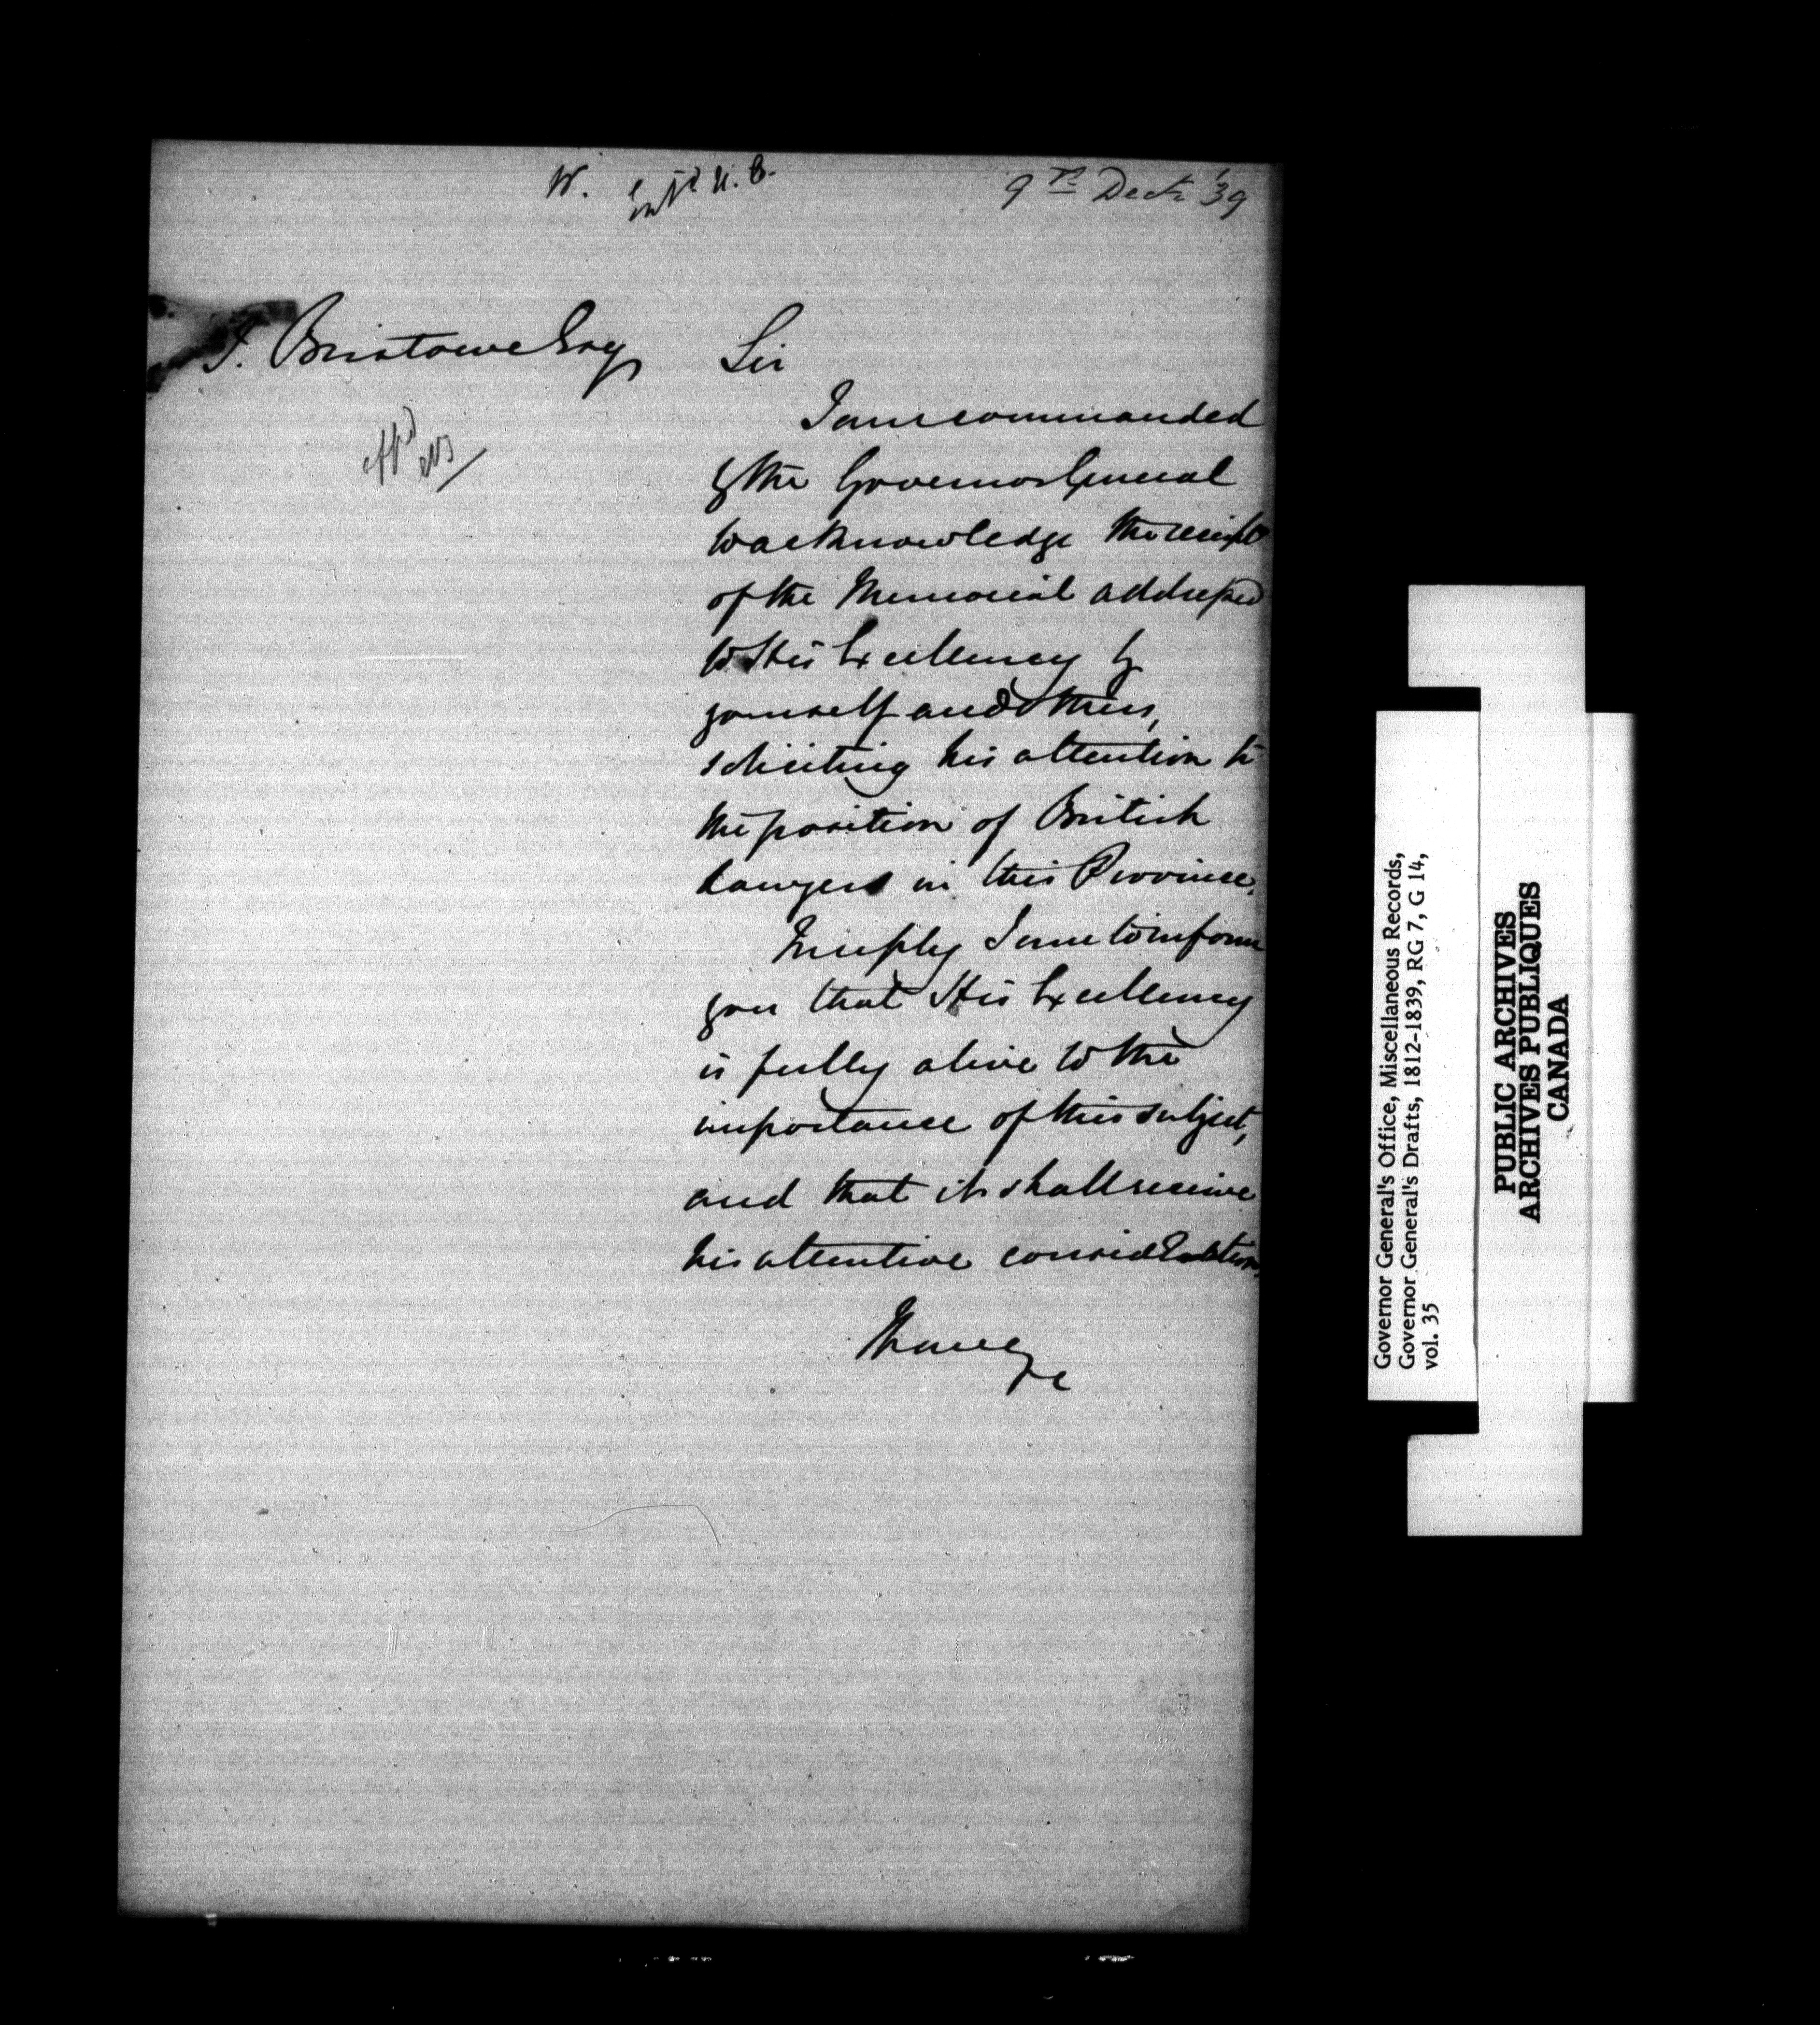 W. Entd U. C.
9th Decr '39
Bristowe Esq
Sir
I am commanded
by the Governor General
to acknowledge the receipt
of the Memorial addressed
to His Excellency by
yourself and others,
soliciting his attention to
the position of British
Lawyers in this Province.
In reply I am to inform
you that His Excellency
is fully alive to the
importance of this subject,
and that it shall receive
his attentive consideration.
I have &c
Governor General's Office, Miscellaneous Records,
Governor General's Drafts, 1812-1839, RG 7, G 14,
vol. 35
PUBLIC ARCHIVES
ARCHIVES PUBLIQUES
CANADA